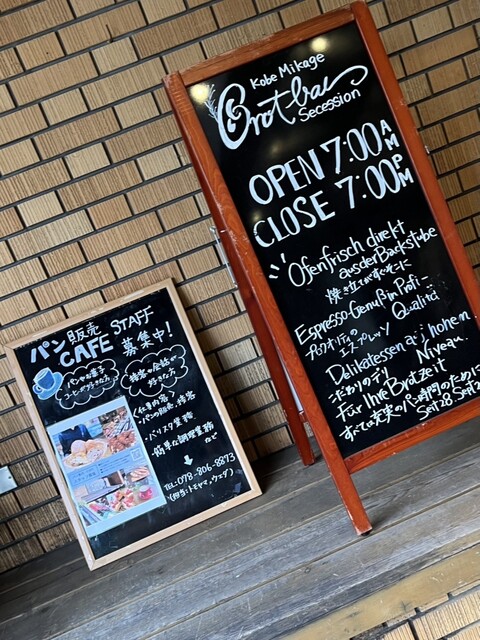 Kobe Mikage
Brotbau
Secession
OPEN 7:00 AM
CLOSE 7:00 PM
Ofenfrisch direkt
aus der Backstube
焼き立てがすぐそこに
Espresso-Genuß in Profi-
Qualität
プロクオリティの
エスプレッソ
Delikatessen auf hohem
Niveau
こだわりのデリ
Für Ihre Brotzeit
すべては充実のパン時間のために
パン販売 STAFF
CAFE 募集中!
パンやお菓子
コーヒーが好きな方
接客のお話が
好きな方
《仕事内容》
・パンの販売、接客
・バリスタ業務
・簡単な調理業務
など
TEL:078-806-8873
(担当:トモヤマ、ウエダ)